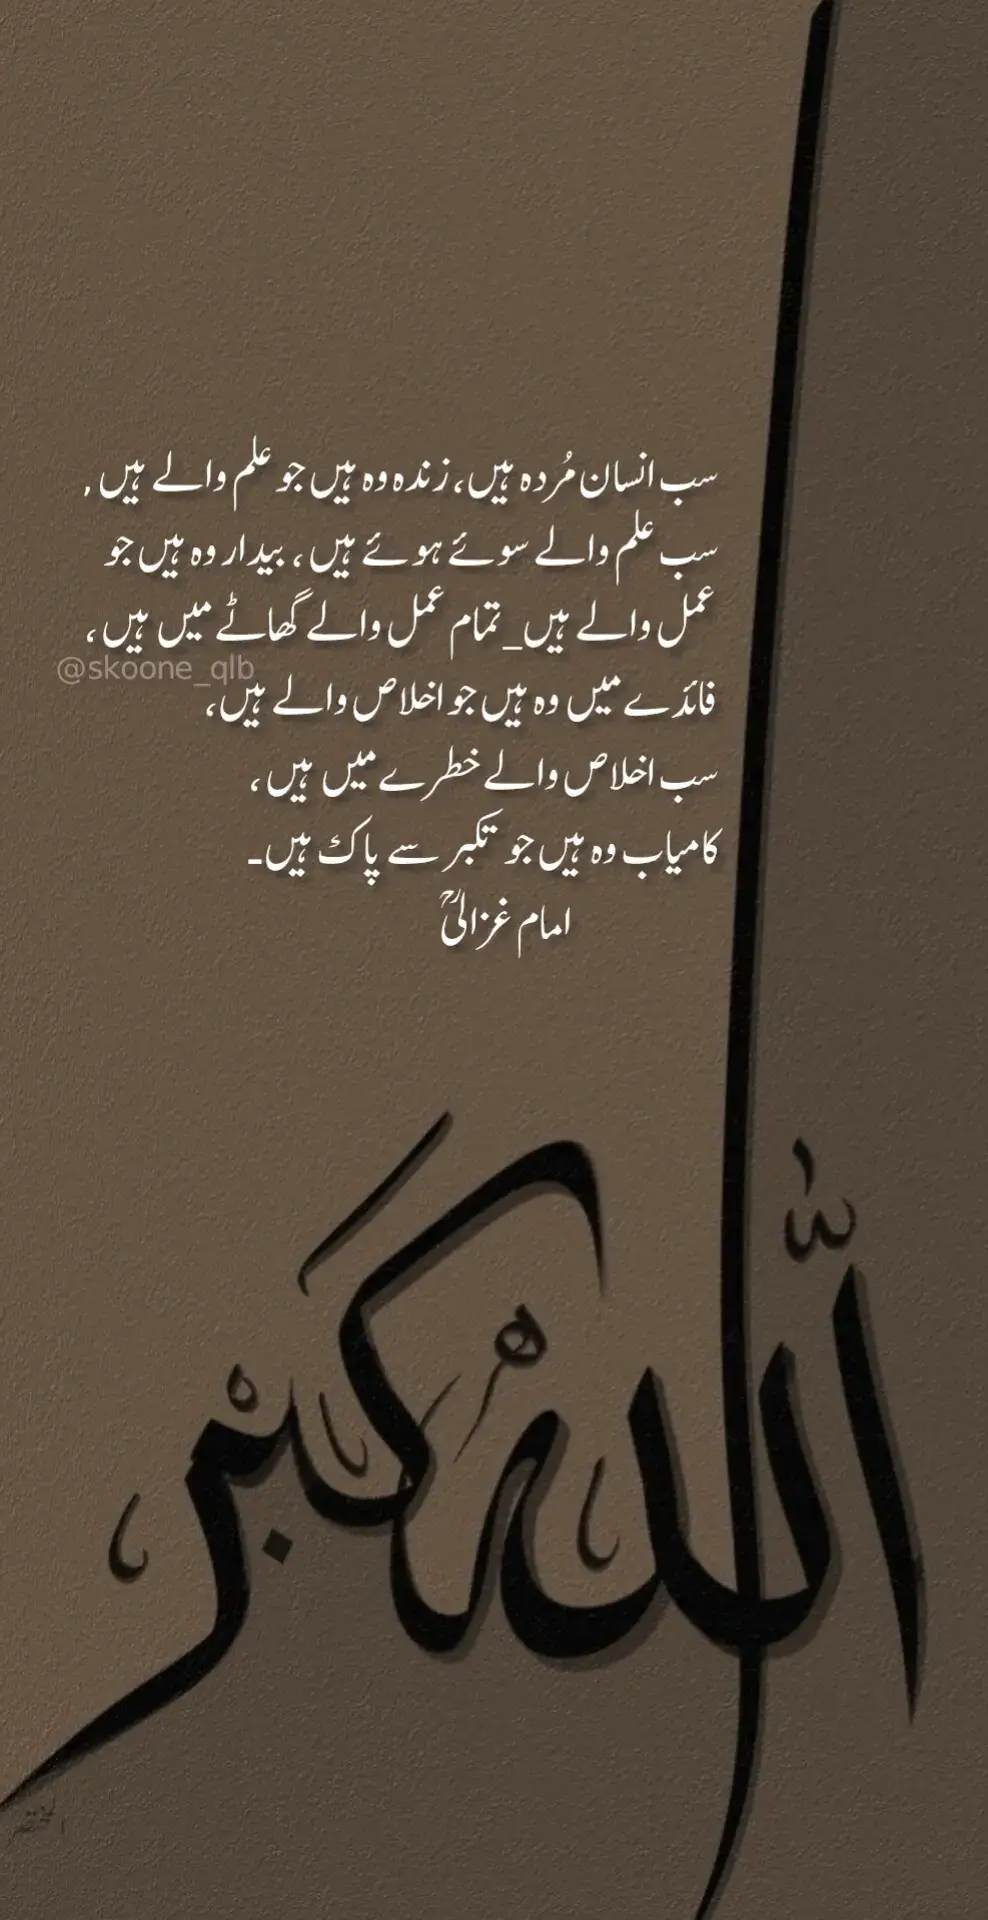 سب انسان مُردہ ہیں، زندہ وہ ہیں جو علم والے ہیں ,
سب علم والے سوئے ہوئے ہیں ، بیدار وہ ہیں جو
عمل والے ہیں_ تمام عمل والے گھاٹے میں ہیں ،
@skoone_qlb
فائدے میں وہ ہیں جو اخلاص والے ہیں،
سب اخلاص والے خطرے میں ہیں ،
کامیاب وہ ہیں جو تکبر سے پاک ہیں۔
امام غزالیؒ
اللّٰه اكبر